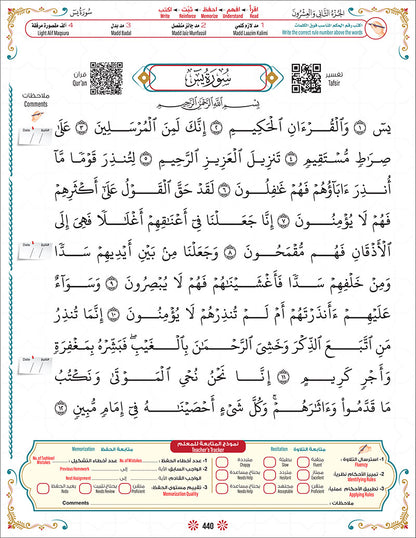 سورة يس
الجزء الثاني والعشرون
اقرأ · افهم · احفظ · ثبّت · اكتب
Read Understand Memorize Reinforce Write
اكتب رقم الحكم المناسب فوق الكلمات
Write the correct rule number above the words
1- مد لازم كلمي
Madd Laazim Kalimi
2- مد جائز منفصل
Madd Jaiz Munfassil
3- مد بدل
Madd Badal
4- ألف مقصورة مرققة
Light Alif Maqsura
تفسير
Tafsir
قرآن
Qur'an
ملاحظات
Comments
سورة يس
بسم الله الرحمن الرحيم
يسٓ ١ وَٱلْقُرْءَانِ ٱلْحَكِيمِ ٢ إِنَّكَ لَمِنَ ٱلْمُرْسَلِينَ ٣ عَلَىٰ
صِرَٰطٍ مُّسْتَقِيمٍ ٤ تَنزِيلَ ٱلْعَزِيزِ ٱلرَّحِيمِ ٥ لِتُنذِرَ قَوْمًا مَّآ
أُنذِرَ ءَابَآؤُهُمْ فَهُمْ غَٰفِلُونَ ٦ لَقَدْ حَقَّ ٱلْقَوْلُ عَلَىٰٓ أَكْثَرِهِمْ
فَهُمْ لَا يُؤْمِنُونَ ٧ إِنَّا جَعَلْنَا فِىٓ أَعْنَٰقِهِمْ أَغْلَٰلًا فَهِىَ إِلَى
ٱلْأَذْقَانِ فَهُم مُّقْمَحُونَ ٨ وَجَعَلْنَا مِنۢ بَيْنِ أَيْدِيهِمْ سَدًّا
وَمِنْ خَلْفِهِمْ سَدًّا فَأَغْشَيْنَٰهُمْ فَهُمْ لَا يُبْصِرُونَ ٩ وَسَوَآءٌ
عَلَيْهِمْ ءَأَنذَرْتَهُمْ أَمْ لَمْ تُنذِرْهُمْ لَا يُؤْمِنُونَ ١٠ إِنَّمَا تُنذِرُ
مَنِ ٱتَّبَعَ ٱلذِّكْرَ وَخَشِىَ ٱلرَّحْمَٰنَ بِٱلْغَيْبِ ۖ فَبَشِّرْهُ بِمَغْفِرَةٍ
وَأَجْرٍ كَرِيمٍ ١١ إِنَّا نَحْنُ نُحْىِ ٱلْمَوْتَىٰ وَنَكْتُبُ
مَا قَدَّمُوا۟ وَءَاثَٰرَهُمْ ۚ وَكُلَّ شَىْءٍ أَحْصَيْنَٰهُ فِىٓ إِمَامٍ مُّبِينٍ ١٢
نموذج المتابعة للمعلم
Teacher's Tracker
متابعة التلاوة Recitation
متابعة الحفظ Memorization
1- استرسال التلاوة :
Fluency
2- تمييز الأحكام نظرية:
Identifying Rules
3- تطبيق الأحكام عملية:
Applying Rules
Fluent
Slow
Choppy
Proficient
Needs Help
Proficient
Acceptable
Needs Help
1- عدد أخطاء الحفظ :
No. of Mistakes
عدد أخطاء التشكيل :
No. of Tashkeel Mistakes
2- الواجب السابق الآية
Previous Homework
الواجب القادم الآية
Next Assignment
3- تقييم مستوى الحفظ:
Memorization Quality
Proficient
Needs Review
Needs Redo
Comments
ملاحظات :
440